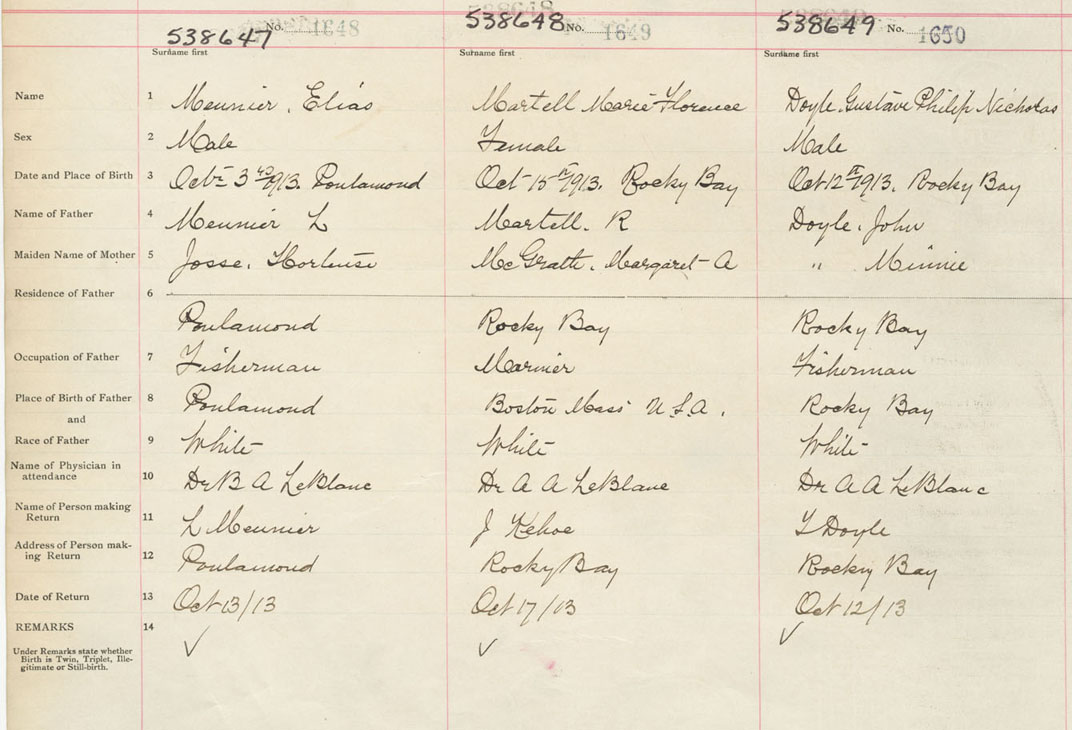 538647 No. 1648 538648 No. 1649 538649 No. 1650
Surname first Surname first Surname first
Name 1 Meunier, Elias Martell Marie Florence Doyle Gustave Philip Nicholas
Sex 2 Male Female Male
Date and Place of Birth 3 Oct 3rd 1913. Poulamond Oct 15th 1913. Rocky Bay Oct 12th 1913. Rocky Bay
Name of Father 4 Meunier L Martell. R Doyle, John
Maiden Name of Mother 5 Josse, Hortense McGrath, Margaret A " Minnie
Residence of Father 6
Poulamond Rocky Bay Rocky Bay
Occupation of Father 7 Fisherman Mariner Fisherman
Place of Birth of Father 8 Poulamond Boston Mass U.S.A. Rocky Bay
and
Race of Father 9 White White White
Name of Physician in
attendance 10 Dr B A LeBlanc Dr A A LeBlanc Dr A A LeBlanc
Name of Person making
Return 11 L Meunier J Kehoe Doyle
Address of Person mak-
ing Return 12 Poulamond Rocky Bay Rocky Bay
Date of Return 13 Oct 13/13 Oct 17/13 Oct 12/13
REMARKS 14 ✓ ✓ ✓
Under Remarks state whether
Birth is Twin, Triplet, Ille-
gitimate or Still-birth.